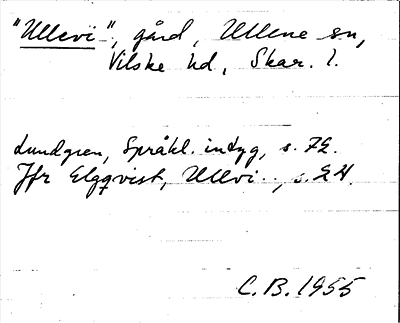 "Ullevi", gård, Ullene sn,
Vilske hd, Skar. l.
Lundgren, Språkl. intyg, s. 72.
Jfr Elgqvist, Ullvi.., s. 24.
C.B. 1955